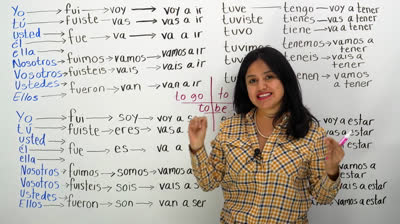 Yo → fui → voy → voy a ir
tú → fuiste → vas → vas a ir
usted
él → fue → va → va a ir
ella
Nosotros → fuimos → vamos → vamos a ir
Vosotros → fuisteis → vais → vais a ir
Ustedes → fueron → van → van a ir
Ellos
to go
to be
to
Yo → fui → soy → voy a
tú → fuiste → eres → vas a
usted
él → fue → es → va a
ella
Nosotros → fuimos → somos → vamos a
Vosotros → fuisteis → sois → vais a
Ustedes
Ellos → fueron → son → van a ser
tuve → tengo → voy a tener
tuviste → tienes → vas a tener
tuvo → tiene → va a tener
tenemos → vamos a tener
tenéis → vais a tener
tienen → vamos a tener
voy a estar
vas a estar
estar
vamos a estar
vais a estar
van a estar